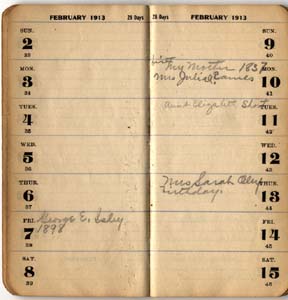 FEBRUARY 1913 28 Days
SUN.
2
33
MON.
3
34
TUES.
4
35
WED.
5
36
THUR.
6
37
FRI. George E. Isley
7 1898
38
SAT.
8
39
28 Days FEBRUARY 1913
SUN.
9
40
My Mother 1837 MON.
Mrs Julia Eames 10
41
Aunt Elizabeth Short TUES.
11
42
WED.
12
43
Mrs Sarah THUR.
Birthday. 13
44
FRI.
14
45
SAT.
15
46